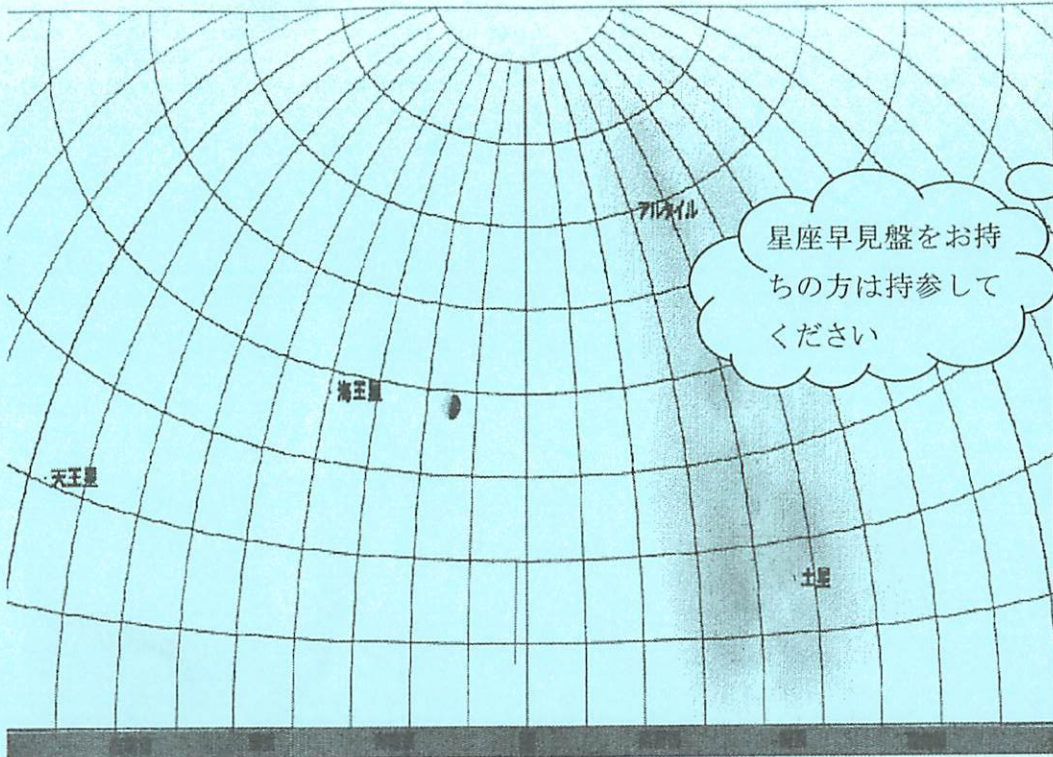 アルタイル
星座早見盤をお持
ちの方は持参して
ください
海王星
天王星
土星